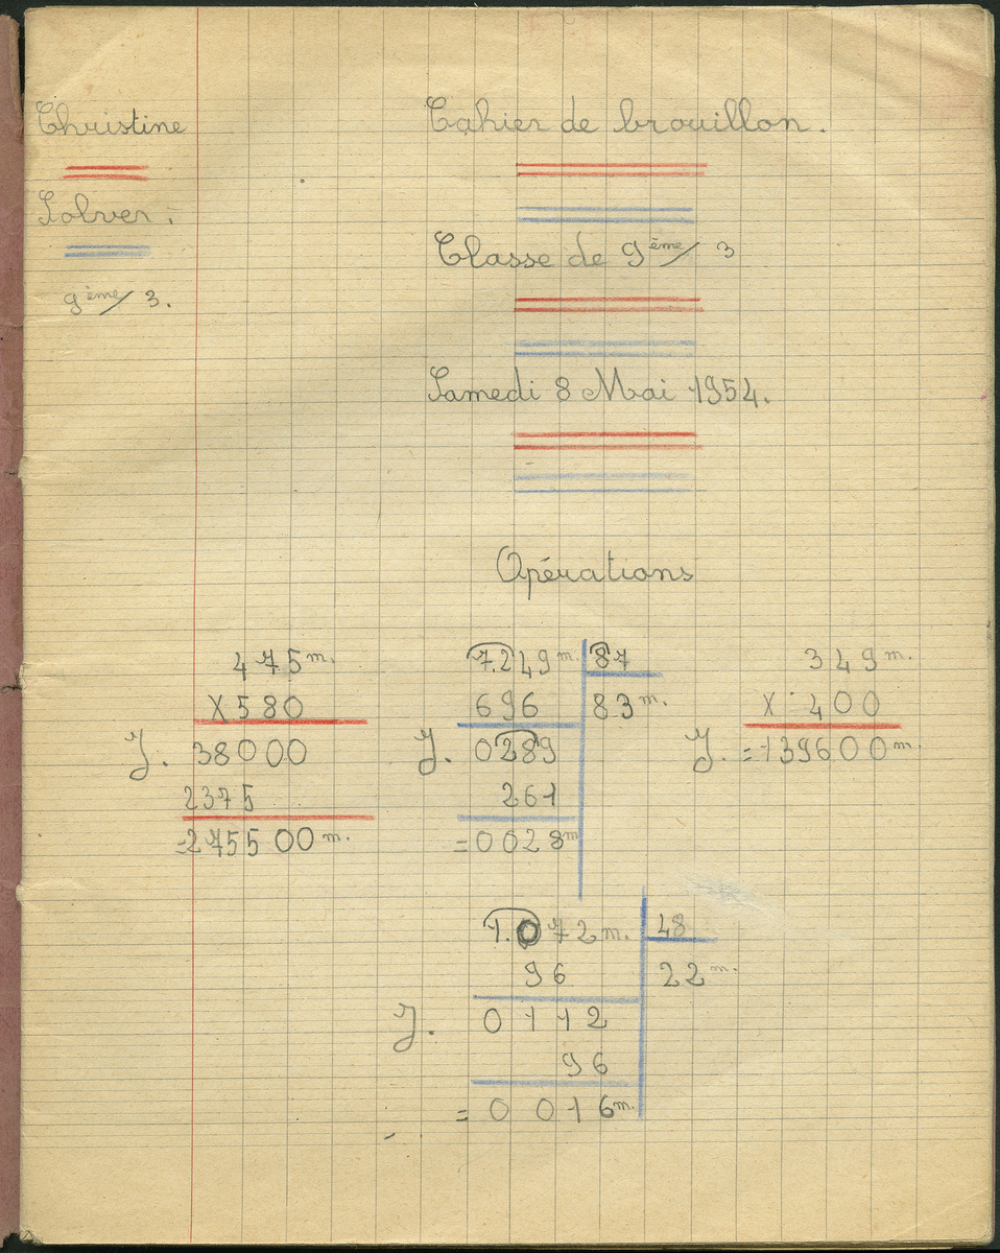 Christine
Solver.
9ème/ 3.
Cahier de brouillon.
Classe de 9ème/ 3
Samedi 8 Mai 1954.
Opérations
475 m.
X 580
J. 38000
2375
=275500 m.
7.249 m. 87
696 83 m.
J. 0289
261
=0028 m
349 m.
X 400
J. =139600 m.
1.072 m. 48
96 22 m.
J. 0112
96
=0016 m.